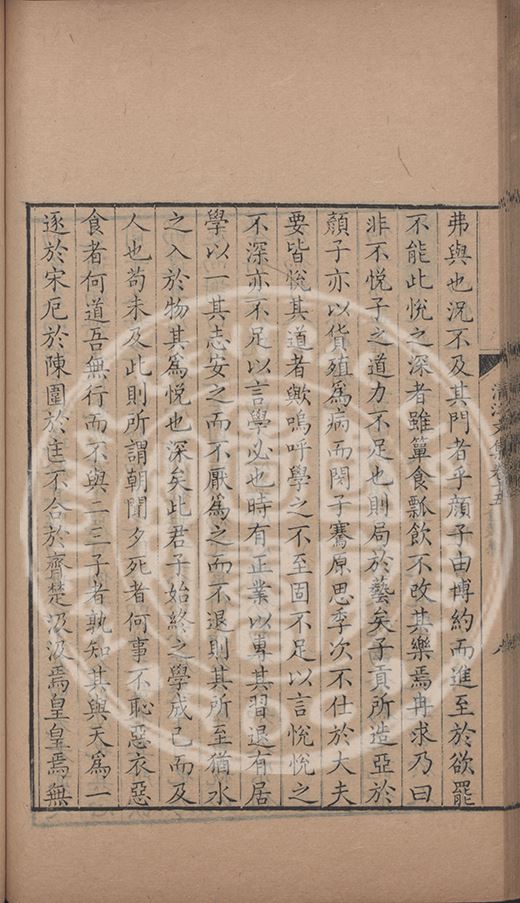 弗與也況不及其門者乎顔子由博約而進至於欲罷
不能此悅之深者雖簞食瓢飲不改其樂焉冉求乃曰
非不悅子之道力不足也則局於藝矣子貢所造亞於
顔子亦以貨殖爲病而閔子騫原思季次不仕於大夫
要皆悅其道者歟嗚呼學之不至固不足以言悅悅之
不深亦不足以言學必也時有正業以專其習退有居
學以一其志安之而不厭爲之而不退則其所至猶水
之入於物其爲悅也深矣此君子始終之學成已而及
人也茍未及此則所謂朝聞夕死者何事不恥惡衣惡
食者何道吾無行而不與二三子者孰知其與天爲一
逐於宋厄於陳圍於匡不合於齊楚汲汲焉皇皇焉無